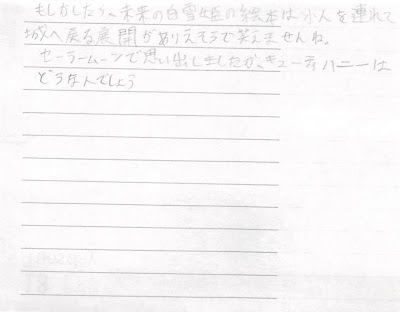 もしかしたら、未来の白雪姫の絵本は小人を連れて
城へ戻る展開がありえそうで笑えませんね。
セーラームーンで思い出しましたが、キューティハニーは
どうなんでしょう